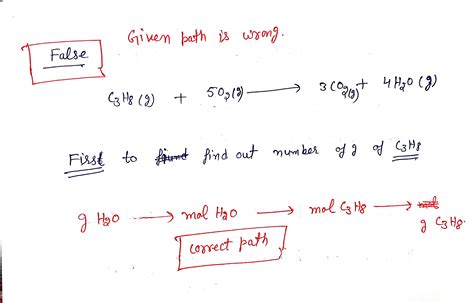 Given path is wrong.
False
C3H8 (g) + 5O2(g) ⟶ 3CO2(g) + 4H2O (g)
First to find out number of g of C3H8
g H2O ⟶ mol H2O ⟶ mol C3H8 ⟶ mol
g C3H8.
correct path